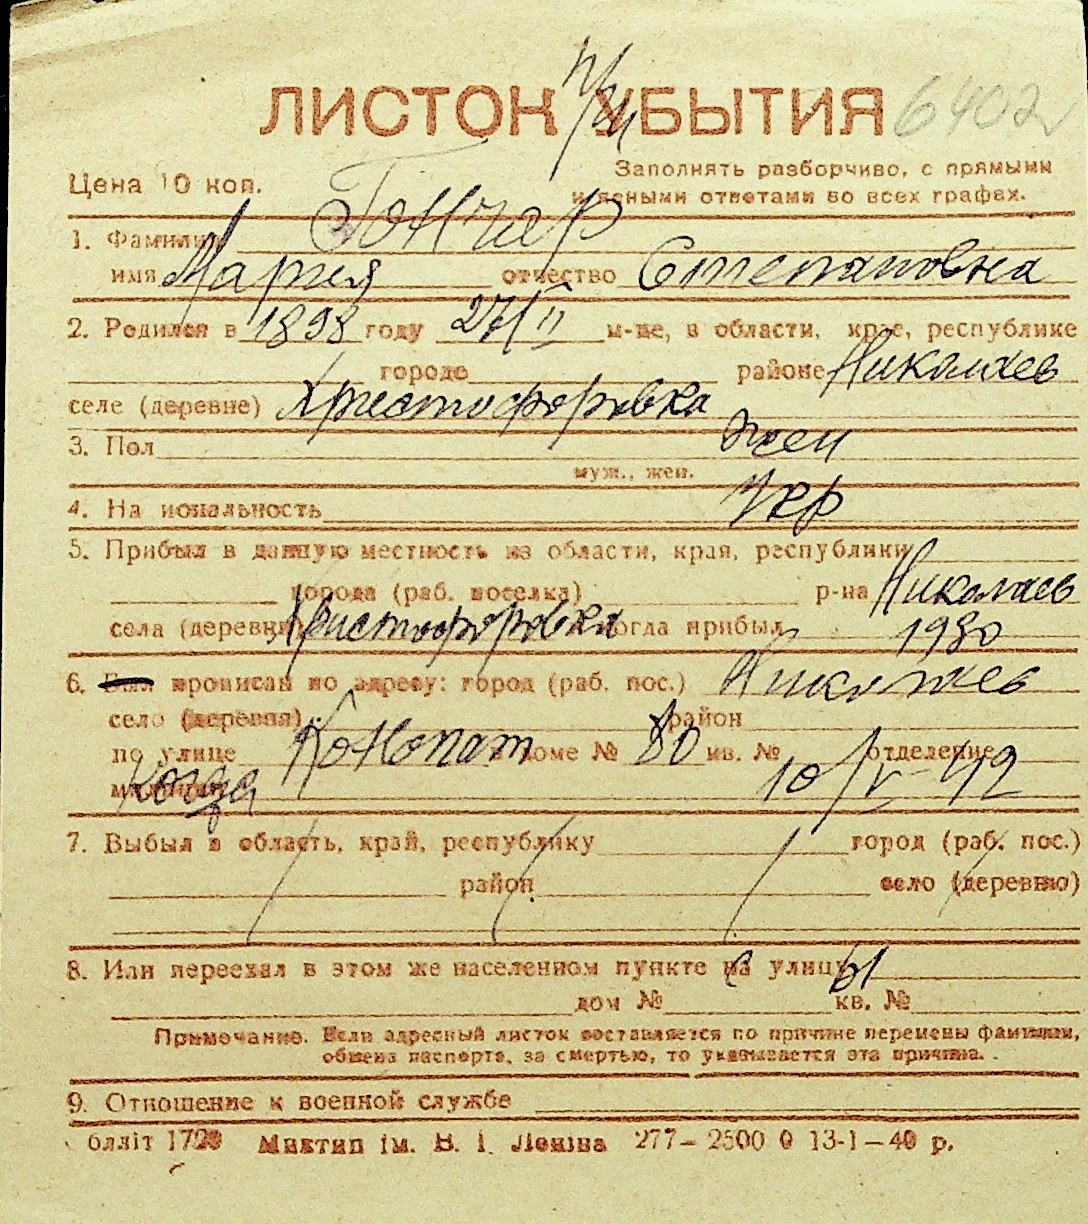 ЛИСТОК УБЫТИЯ 6402
Цена 10 коп.
Заполнять разборчиво, с прямыми
и ясными ответами во всех графах.
1. Фамилия Гончер
имя Мария отчество Степановна
2. Родился в 1898 году 27/II м-це, в области, крае, республике
городе районе Николаев
селе (деревне) Христофоровка
3. Пол жен
муж., жен.
4. Национальность Укр
5. Прибыл в данную местность из области, края, республики
города (раб. поселка) р-на Николаев
села (деревни) Христофоровка когда прибыл 1930
6. Был прописан по адресу: город (раб. пос.) Николаев
село (деревня) район
по улице Конопат в доме № 80 кв. № отделение
милиции Когда 10/V-42
7. Выбыл в область, край, республику город (раб. пос.)
район село (деревню)
8. Или переехал в этом же населенном пункте с улицы
дом № кв. №
Примечание. Если адресный листок составляется по причине перемены фамилии,
обмена паспорта, за смертью, то указывается эта причина.
9. Отношение к военной службе
блліт 1720 Миктип ім. В. І. Леніна 277–2500 0 13-1–40 р.